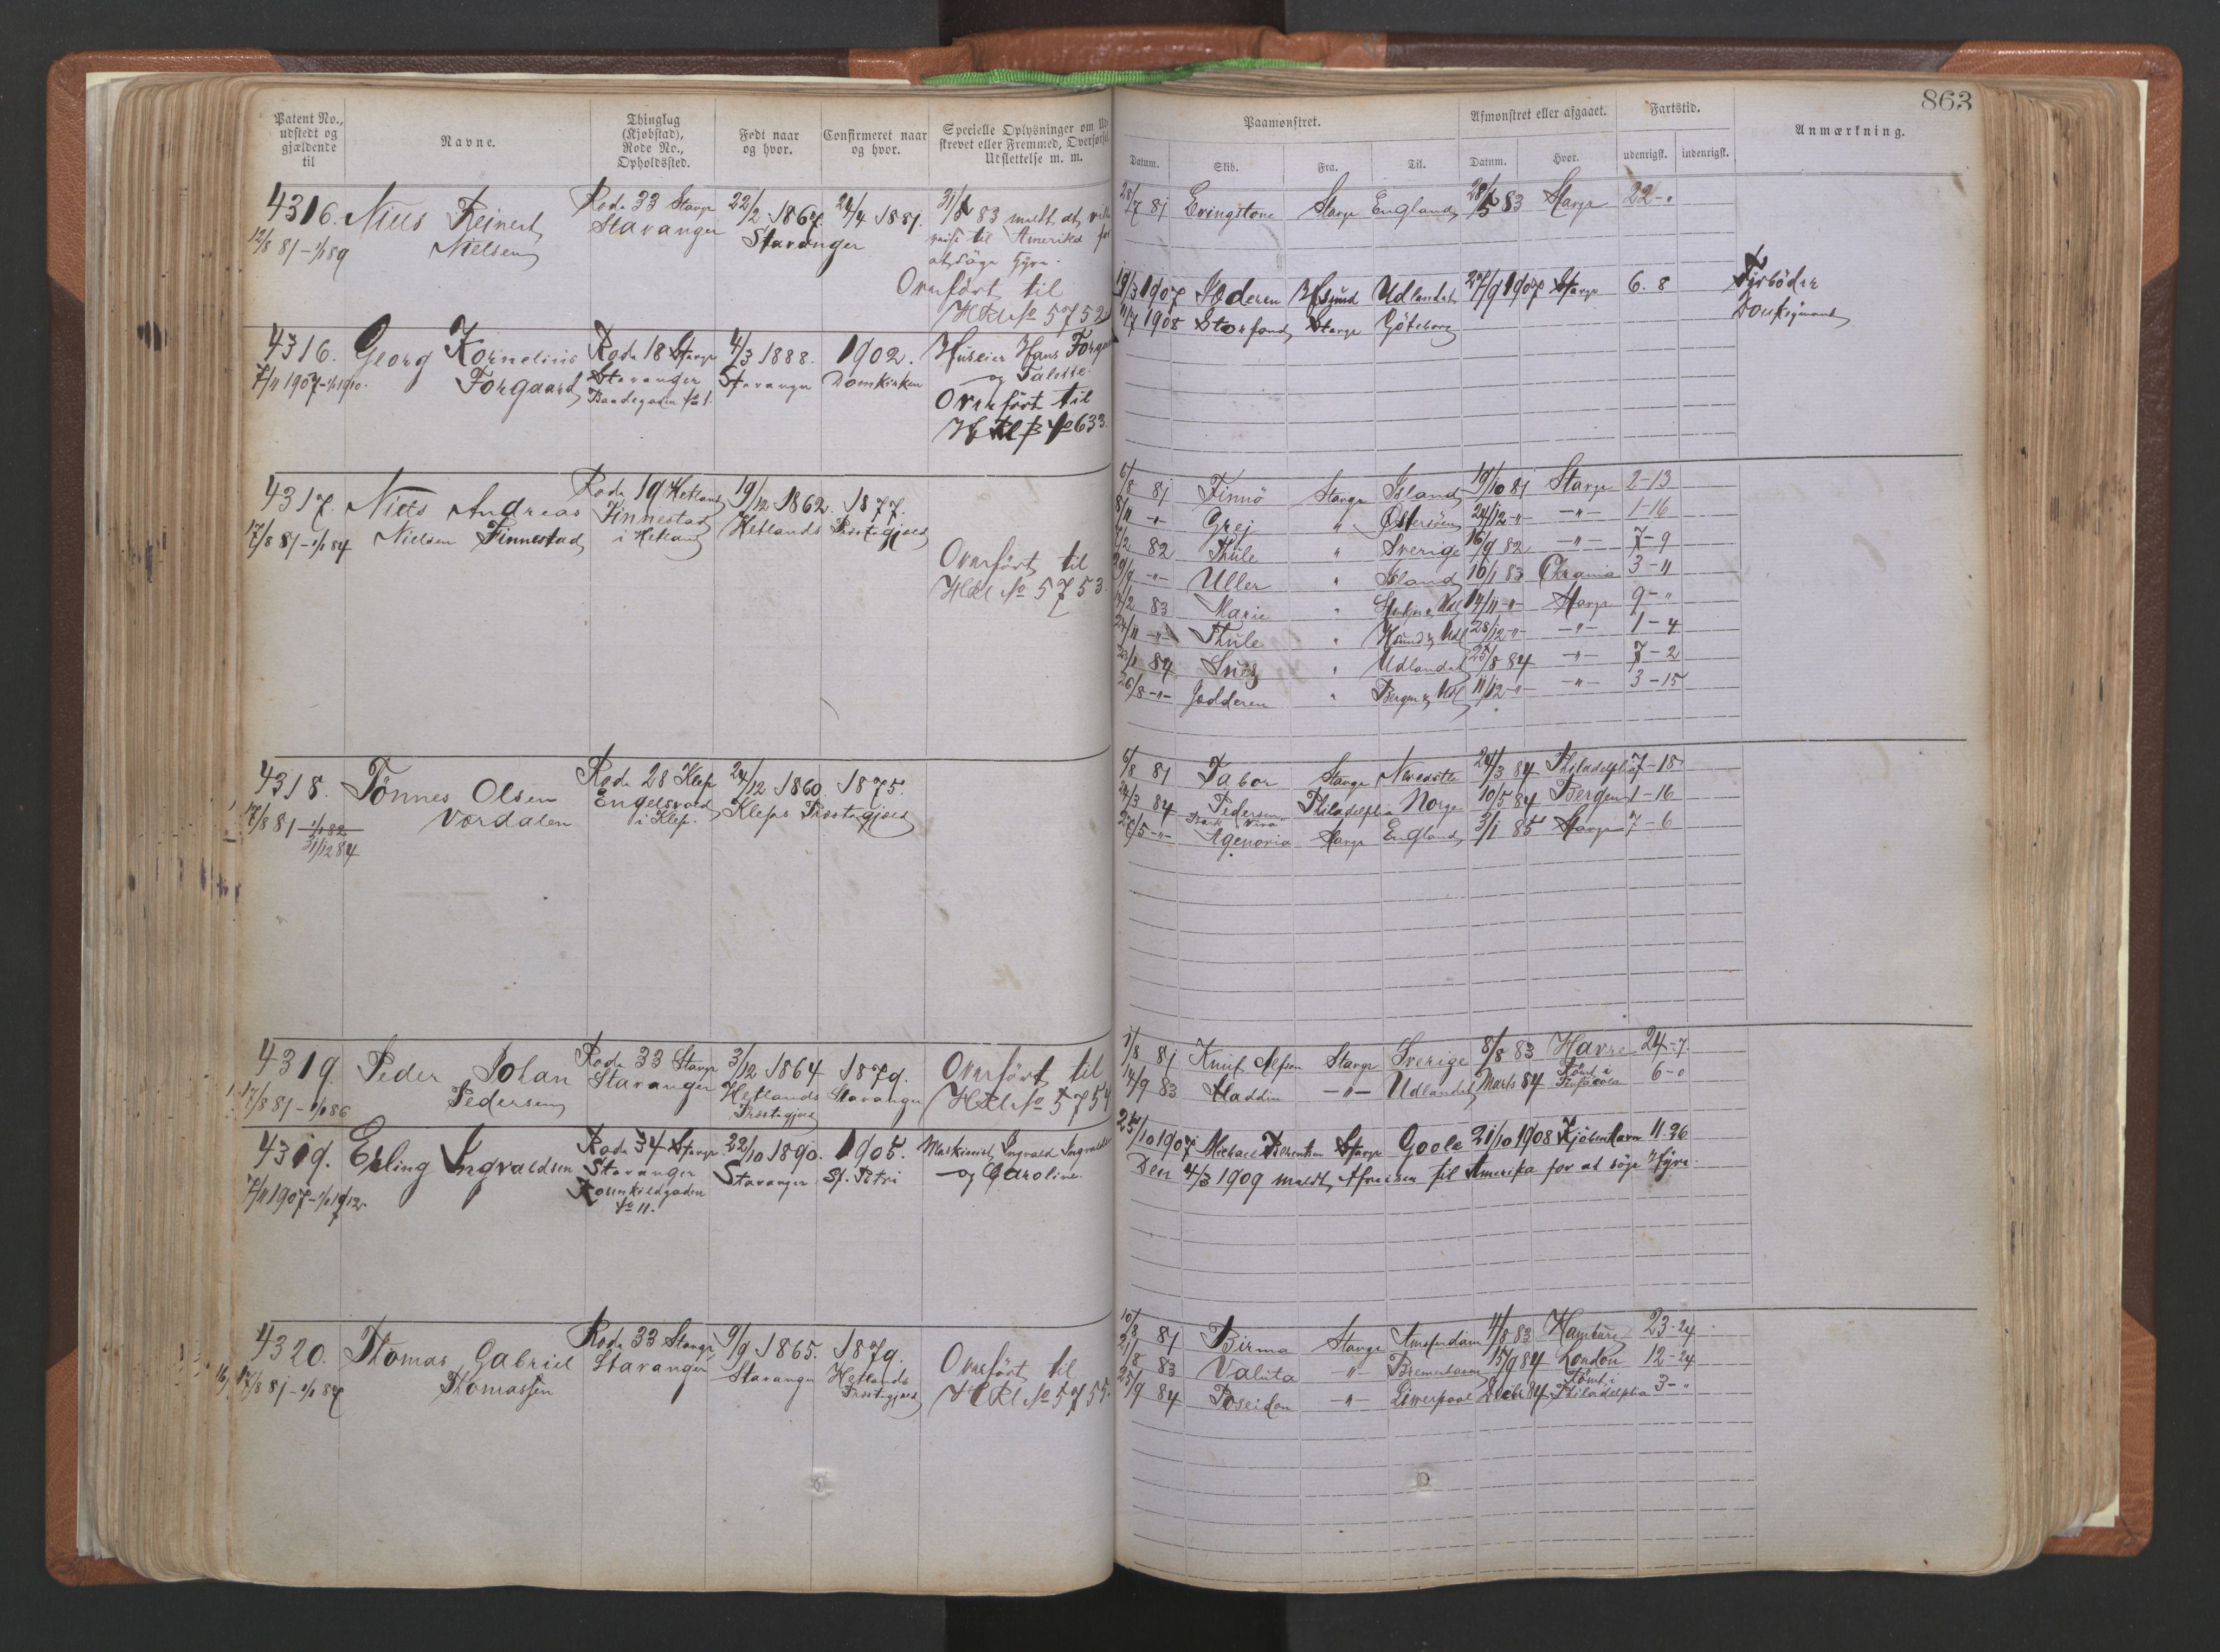 863
Patent No.,
udstedt og
gjældende
til
Navne.
Thinglag
(Kjøbstad),
Rode No.,
Opholdssted.
Født naar
og hvor.
Confirmeret naar
og hvor.
Specielle Oplysninger om
skrevet eller Fremmed, Overførsel,
Udslettelse m. m.
Paamønstret.
Datum.
Skib.
Fra.
Til.
Afmønstret eller afgaaet.
Datum.
Hvor.
Fartstid.
udenrigsk.
indenrigsk.
Anmærkning.
4316. Niels Reinert Rode 33 Stavgr 22/2 1867. 24/4 1881. 31/8 83 meldt at
12/8 81 - 1/1 89 Nielsen Stavanger Stavanger reise til Amerika for
at søge Hyre.
Overført til
HKl No 5752
28/7 81 Stavgr England 28/5 83 Stavgr 22-"
4316. Georg Kornelius Rode 18 Stavgr 4/3 1888. 1902. Huseier Hans Forgaard
7/11 1907 - 1/1 1910. Forgaard Stavanger Stavanger Domkirken og Talette
No 1.
Overført til
No 633
19/3 1907 Jæderen Udlandet 27/9 1907 Stavgr 6. 8 Fyrbøder
11/7 1908 Storfond Stavgr Göteborg Donkeymand
4317. Niels Andreas Rode 19 Hetland 19/12 1862. 1877.
17/8 81 - 1/1 84 Nielsen Finnestad Finnestad Hetlands Præstegjæld
i Hetland
Overført til
HKl No 5753.
6/8 81 Finnö Stavgr Island 19/10 81 Stavgr 2-13
8/11 -"- Grej " Østersøen 24/12 -"- -"- 1-16
82 Thule " Sverige 16/9 82 -"- 7-9
29/9 -"- Uller " Island 10/1 83 Chrania 3-11
83 Marie " 14/11 -"- Stavgr 9-"
24/11 -"- Thule " 28/12 -"- -"- 1-4
84 " Udlandet 25/8 84 -"- 7-2
26/8 -"- Jædderen " 11/12 -"- -"- 3-15
4318. Tönnes Olsen Rode 28 Klep 24/12 1860. 1875.
17/8 81 - 1/1 82 Vordalen Engelsvold Kleps Præstegjæld
31/12 84 i Klep.
6/8 81 Tabor Stavgr Newcastle 24/3 84 Philadelphia 7-18
24/3 84 Pedersen Philadelphia Norge 10/5 84 Bergen 1-16
27/5 -"- Agenoria Stavgr England 3/1 85 Stavgr 7-6
4319 Peder Johan Rode 33 Stavgr 3/12 1864 1879. Overført til
17/8 81 - 1/1 86 Pedersen Stavanger Hetlands Stavanger HKl No 5754
Præstegjæld
1/8 81 Stavgr Sverige 8/8 83 Havre 24-7.
14/9 83 Aladdin -"- Udlandet Marts 84 Rømt i 6-"
4319. Erling Ingvaldsen Rode 34 Stavgr 22/10 1890. 1905. Maskinist Ingvald Ingvaldsen
7/11 1907 - 1/1 1912. Stavanger Stavanger St. Petri og Caroline.
Rosenkildgaden
No 11.
25/10 1907 Stavgr Goole 21/10 1908 Kjøbenhavn 11.26
Den 4/3 1909 meldt Afreisen til Amerika for at søge Hyre.
4320. Thomas Gabriel Rode 33 Stavgr 9/9 1865. 1879. Overført til
17/8 81 - 1/1 87 Thomassen Stavanger Stavanger Hetlands HKl No 5755.
Præstegjæld
10/8 81 Birma Stavgr Amsterdam 4/8 83 Hamburg 23-24
21/8 83 Valuta -"- Bremerhaven 15/9 84 London 12-24
25/9 84 Poseidon -"- Liverpool Decbr 84 Rømt i Philadelphia 3-"